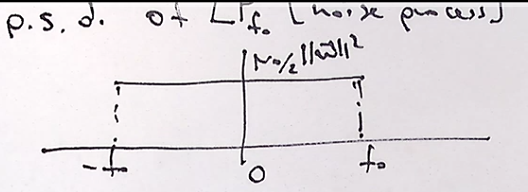 p.s.d. of LP_f₀ [noise process]
N₀/2 ||w||²
-f₀ 0 f₀